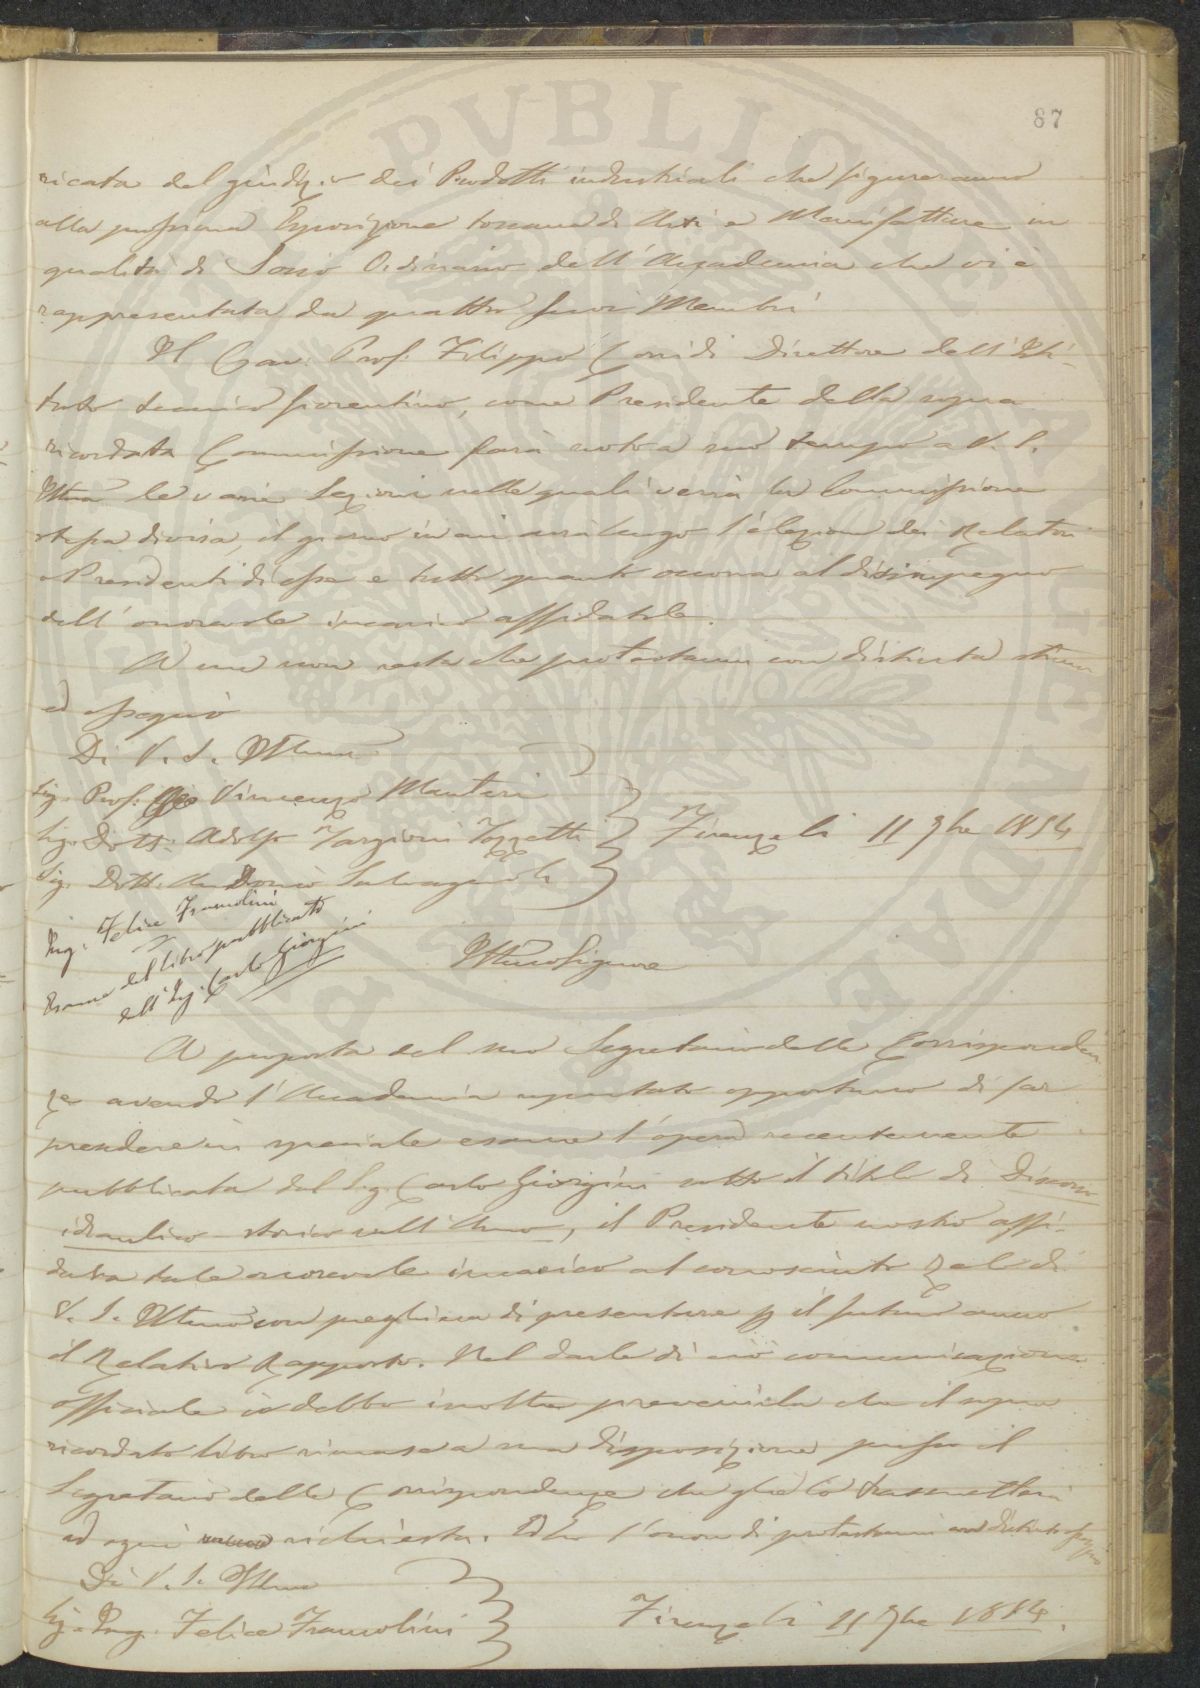 87
ricata del giudizio dei Prodotti industriali che figureranno
alla prossima Esposizione toscana di Arti e Manifatture in
qualità di Socio Ordinario dell'Accademia che vi è
rappresentata da quattro suoi Membri
Il Cav: Prof. Filippo Corridi Direttore dell'Isti
tuto tecnico fiorentino, come Presidente della sopra
ricordata Commissione farà noto a suo tempo a V. S.
Illma le varie Sezioni nelle quali verrà la Commissione
stessa divisa, il giorno in cui avrà luogo l'elezione dei Relatori
e Presidenti di esse e tutto quanto occorra al disimpegno
dell'onorevole incarico affidatole.
A me non resta che protestarmi con distinta stima
ed ossequio
Di V. S. Illma
Sig. Prof. Vincenzo Manteri
Sig. Dott. Adolfo Targioni Tozzetti Firenze li 11 9bre 1854
Sig. Dott. Antonio Salvagnoli
Ing. Felice Francolini
Esame del libro pubblicato
dall'Ing. Carlo Giorgini
Illmo Signore
A proposta del suo Segretario delle Corrisponden
ze avendo l'Accademia reputato opportuno di far
prendere in speciale esame l'opera recentemente
pubblicata dal Sig. Carlo Giorgini sotto il titolo di Discorso
idraulico storico sull'Arno, il Presidente nostro affi
dava tale onorevole incarico al conosciuto zelo di
V. S. Illma con preghiera di presentare p il futuro anno
il Relativo Rapporto. Nel darle di ciò comunicazione
officiale io debbo inoltre prevenirla che il sopra
ricordato libro rimase a sua disposizione presso il
Segretario delle Corrispondenze che glie lo trasmetterà
ad ogni richiesta. Ed ho l'onore di protestarmi con distinto ossequio
Di V. S. Illma
Sig. Ing. Felice Francolini Firenze li 11 9bre 1854.